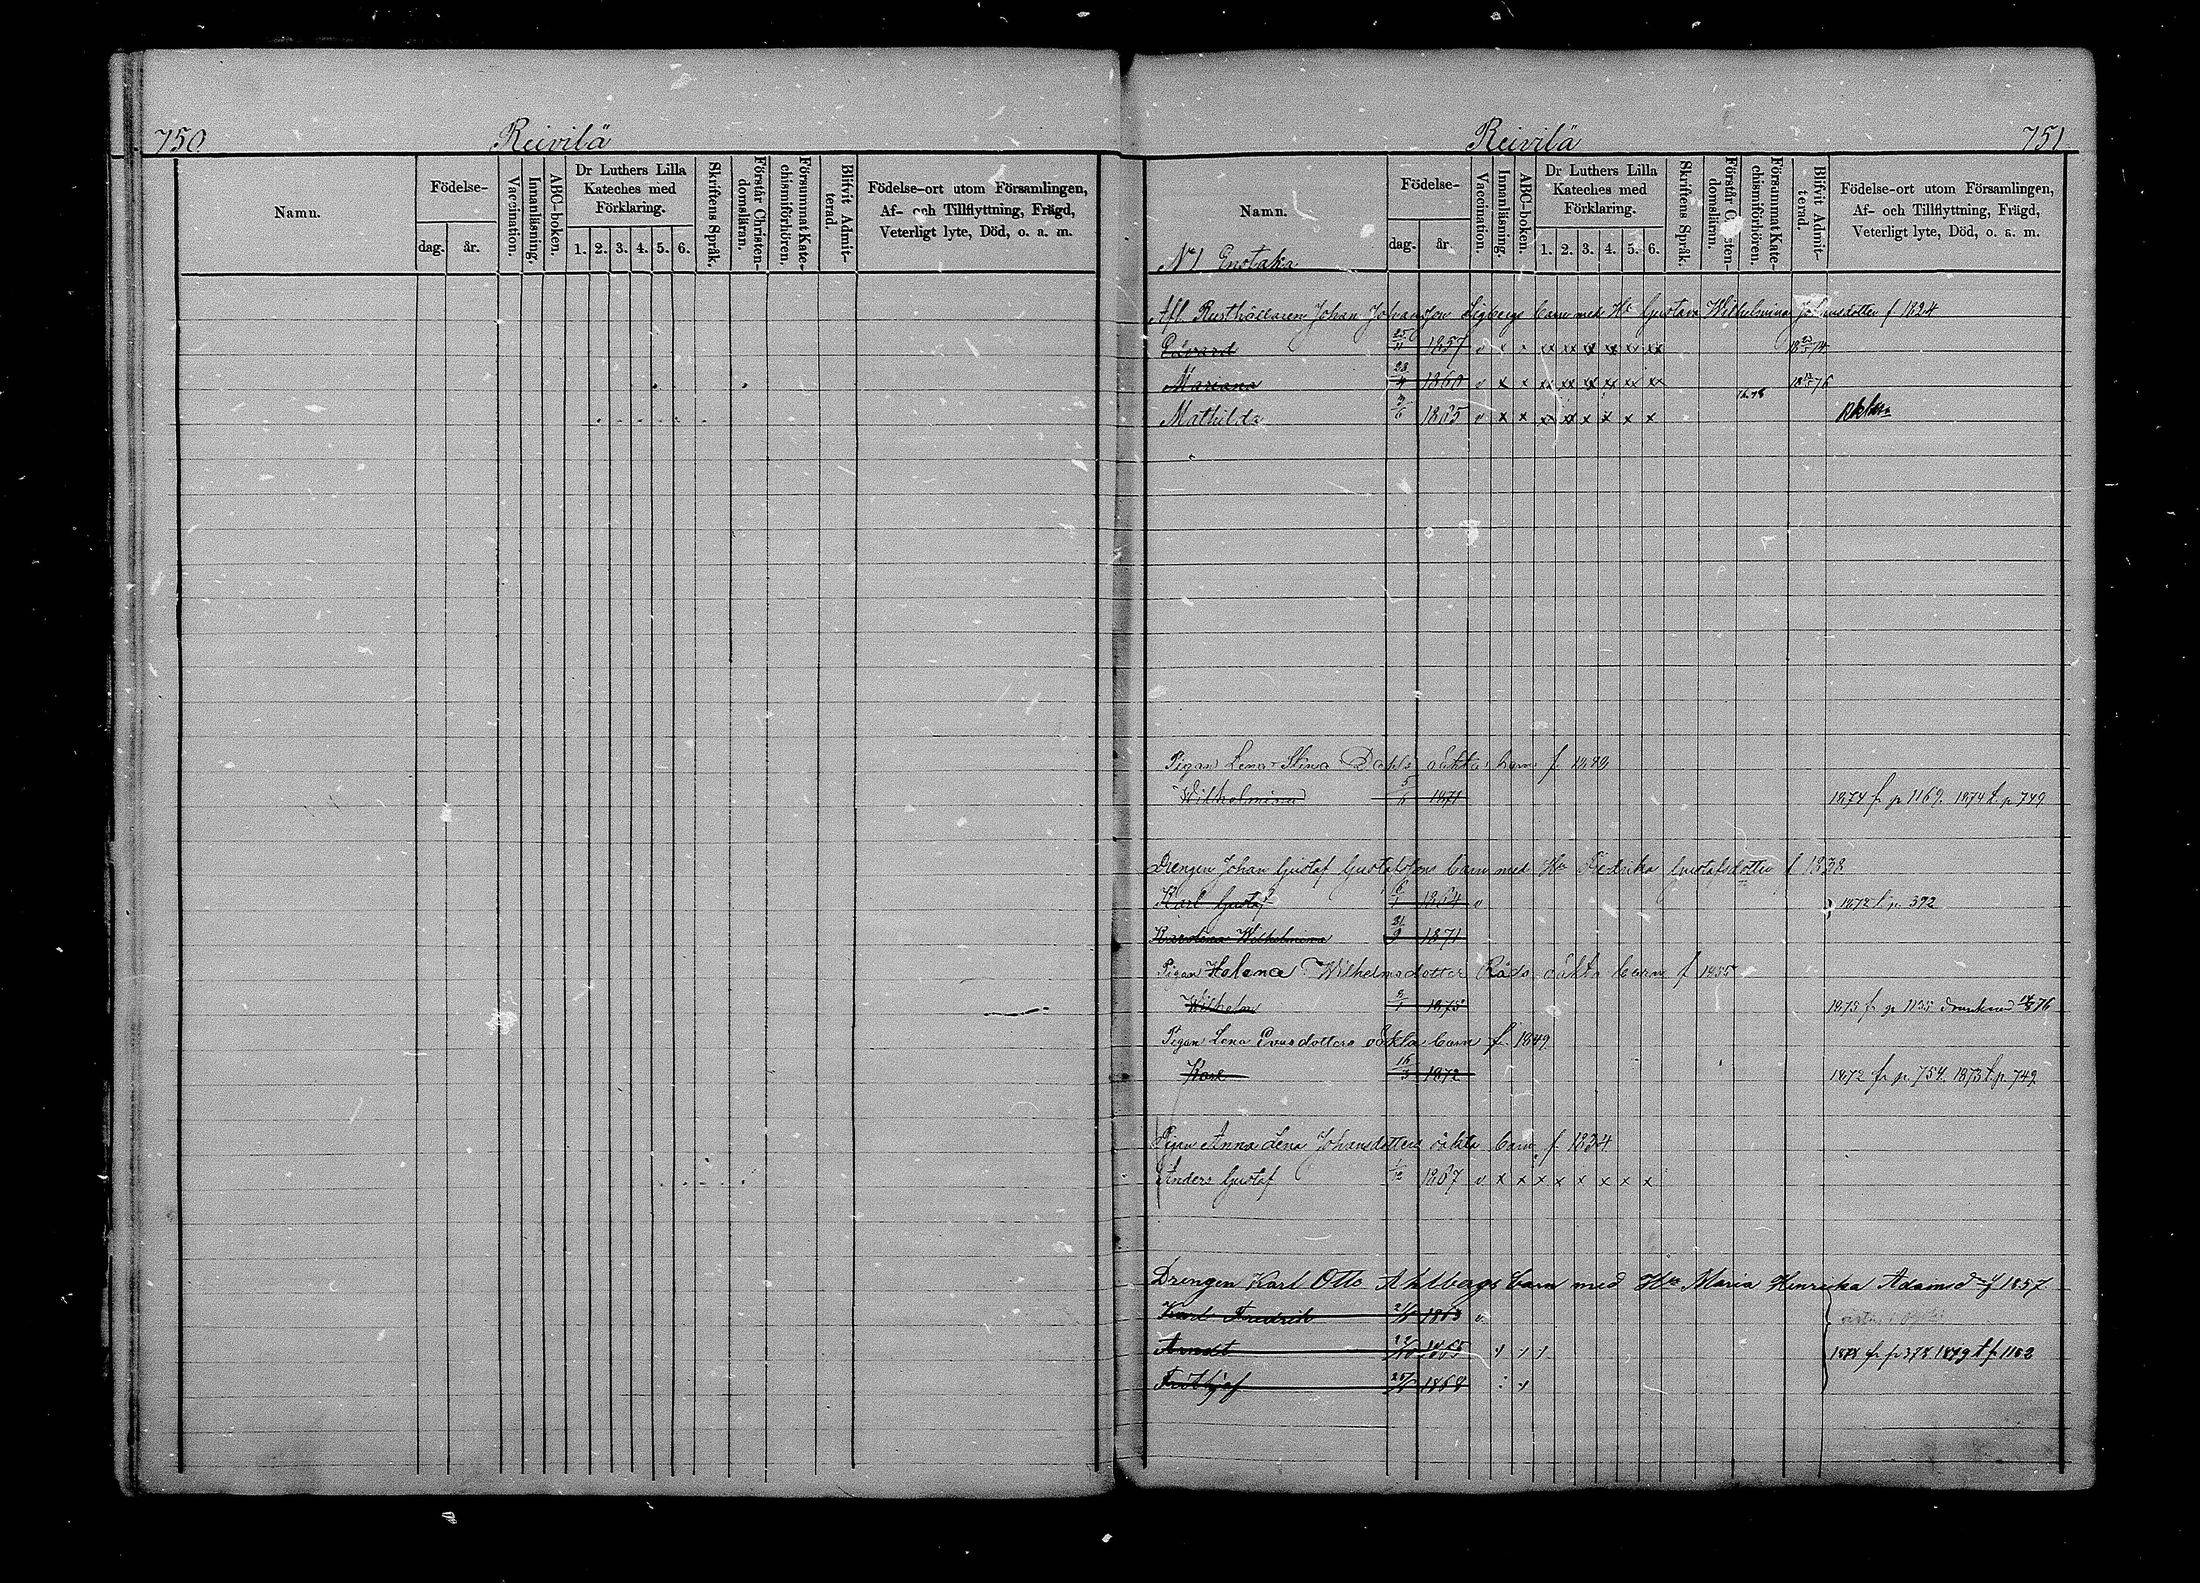 750 Reivilä
Namn. Födelse- dag. år. Vaccination. Innanläsning. ABC-boken. Dr Luthers Lilla Kateches med Förklaring. 1. 2. 3. 4. 5. 6. Skriftens Språk. Förstår Christendomsläran. Försummat Katechismiförhören. Blifvit Admitterad. Födelse-ort utom Församlingen, Af- och Tillflyttning, Frägd, Veterligt lyte, Död, o. a. m.
Reivilä 751
Namn. Födelse- dag. år. Vaccination. Innanläsning. ABC-boken. Dr Luthers Lilla Kateches med Förklaring. 1. 2. 3. 4. 5. 6. Skriftens Språk. Förstår Christendomsläran. Försummat Katechismiförhören. Blifvit Admitterad. Födelse-ort utom Församlingen, Af- och Tillflyttning, Frägd, Veterligt lyte, Död, o. a. m.
No 1 Enotaka
Afl. Rusthållaren Johan Johansson Sigbergs barn med Hu Gustava Wilhelmina Johansdotter f 1824
Edvard 25/11 1857 v x x xx xx xx xx xx xx
Mariana 23/4 1860 v x x xx xx xx xx xx xx
Mathilda 3/6 1865 v x x xx xx x x x x
Pigan Lena Stina oäkta barn f
Wilhelmina 5/6 1871 1874 fr p 1169. 1874 t. p 749
Drengen Johan Gustaf Gustafssons barn med Hu Fredrika Gustafsdotter f 1838
Karl Gustaf 6/1 1864 v 1872 t. p. 392
Karolina Wilhelmina 21/9 1871
Pigan Helena Wilhelmsdotter oäkta barn f 1835
Wilhelm 3/1 1875 1875 fr p 1135
Pigan Lena Evasdotters oäkta barn f. 1849
Karl 16/3 1872 1872 fr p. 754. 1873 t. p. 749
Pigan Anna Lena Johansdotters oäkta barn f. 1834
Anders Gustaf 1867 v x x x x x x x x
Drengen Karl Otto Ahlbergs barn med Hu Maria Henrika Adamsd f 1857
Karl Fredrik 1863 v
Arndt 1865
Frithjof 1868